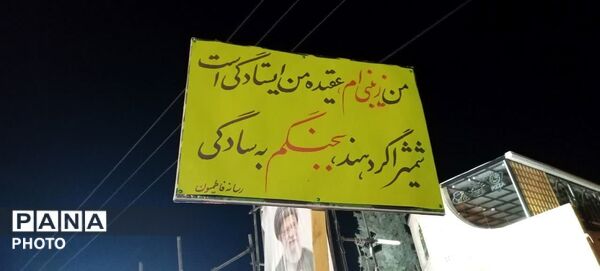 من زینبی‌ام، عقیده من ایستادگی است
شمشیر اگر دهند، بجنگم به سادگی
رسانه فاطمیون
PANA
PHOTO